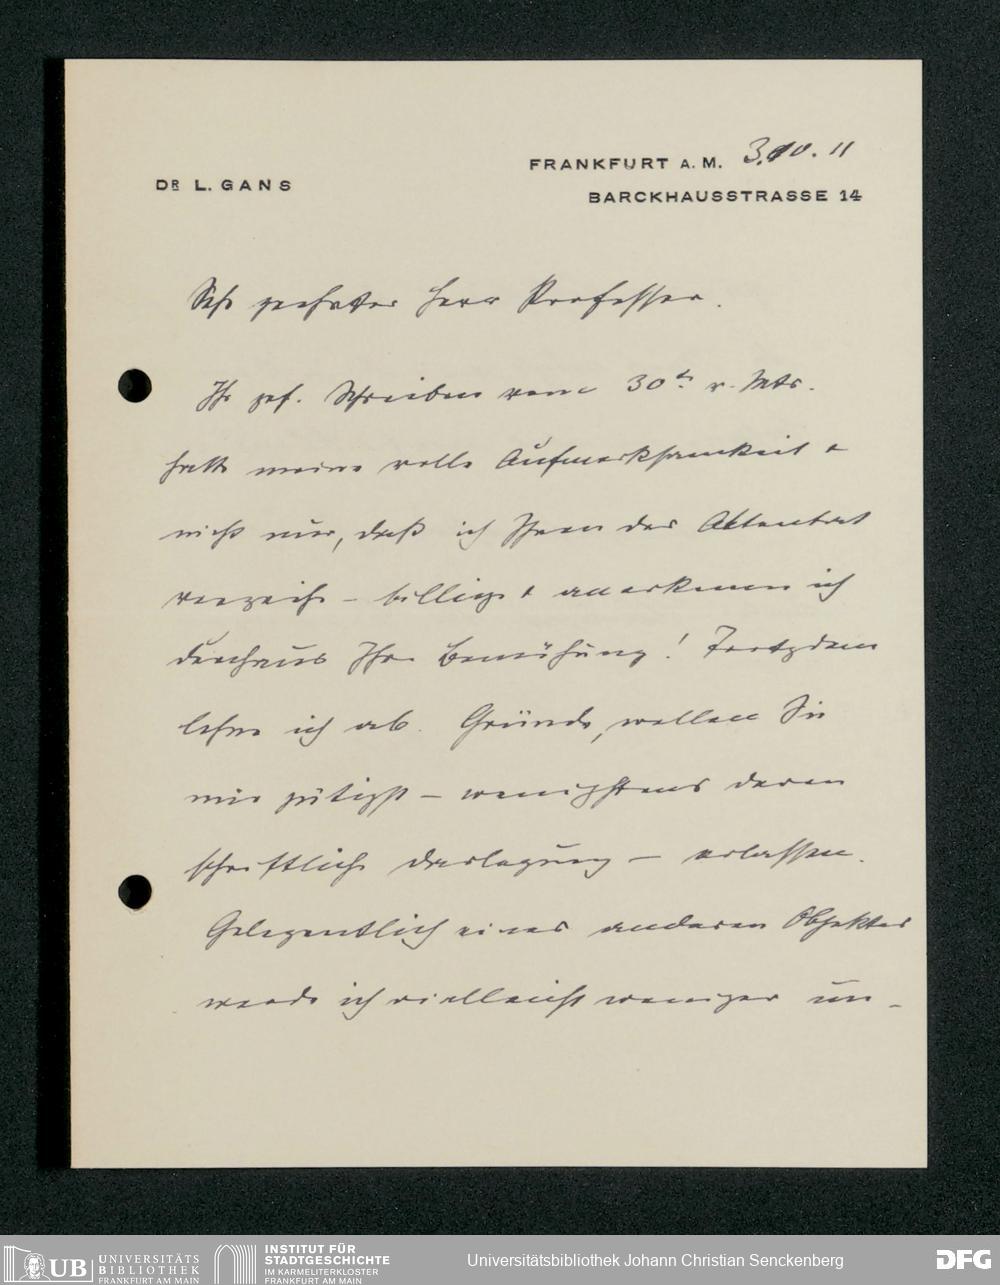 FRANKFURT A. M. 3.10.11
DR L. GANS
BARCKHAUSSTRASSE 14
Sehr geehrter Herr Professor.
Ihr gef. Schreiben vom 30t v. Mts.
hatte meine volle Aufmerksamkeit &
nicht nur, daß ich Ihnen das Attentat
verzeihe – billige & anerkenne ich
durchaus Ihre Bemühung! Trotzdem
lehne ich ab. Gründe, wollen Sie
mir gütigst – wenigstens deren
schriftliche Darlegung – erlassen.
Gelegentlich eines anderen Objektes
werde ich vielleicht weniger un-
UB UNIVERSITÄTS
BIBLIOTHEK
FRANKFURT AM MAIN
INSTITUT FÜR
STADTGESCHICHTE
IM KARMELITERKLOSTER
FRANKFURT AM MAIN
Universitätsbibliothek Johann Christian Senckenberg
DFG